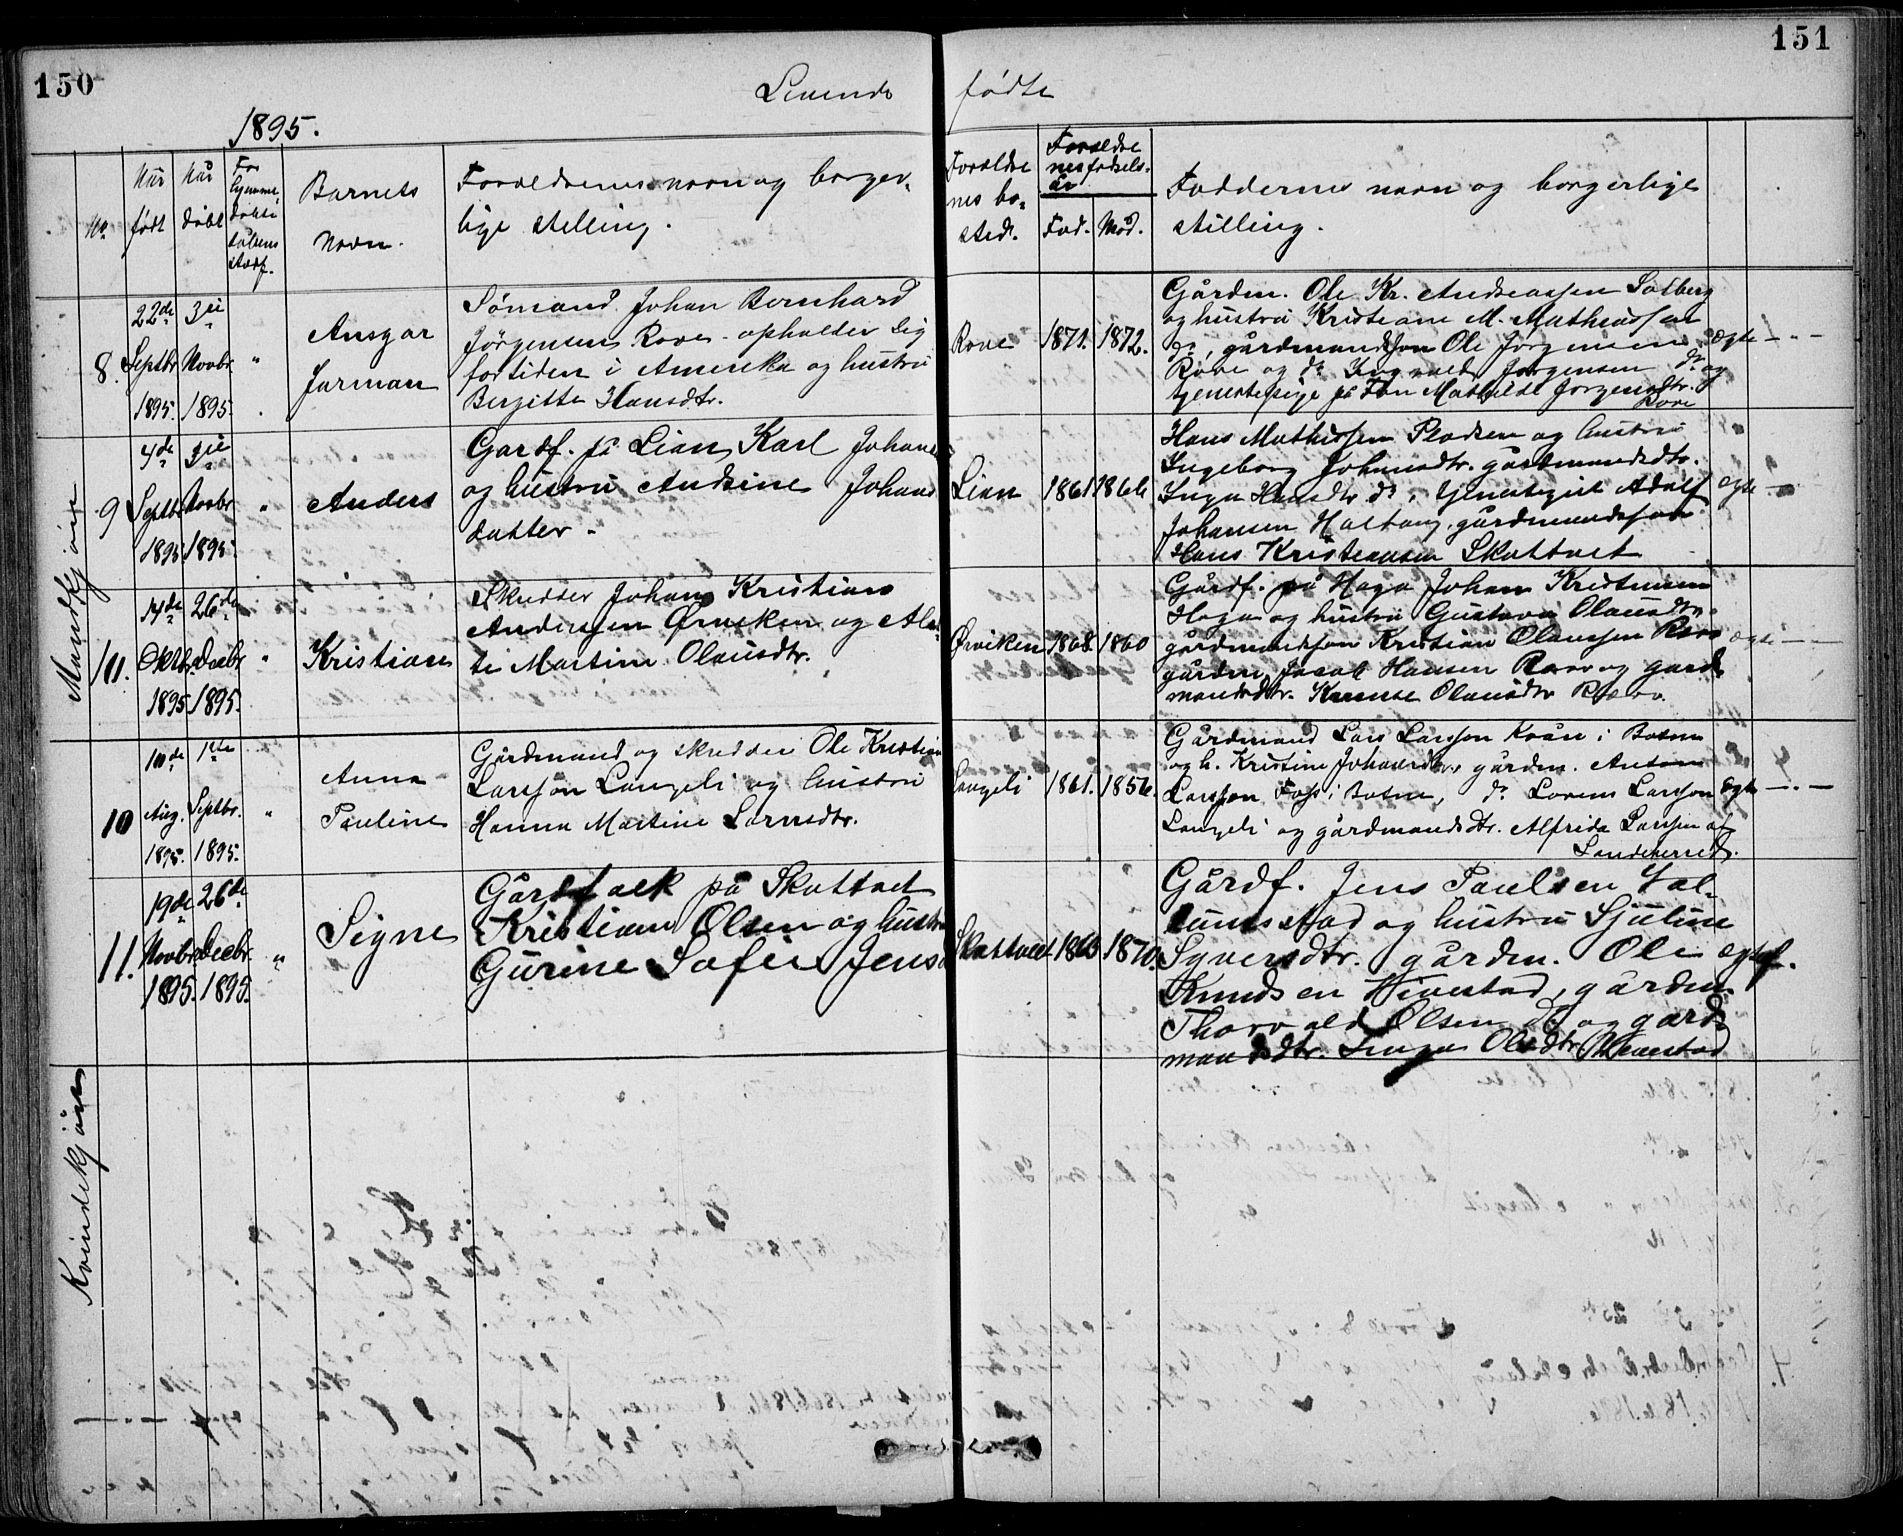 150
151
Levende fødte
1895.
No
Når født
Når døbt
For hjemme døbte dåbens stadf.
Barnets navn.
Forældrenes navn og borger-
lige stilling.
Forældre
nes bo-
sted.
Forældre
nes fødsels-
år
Fad.
Mod.
Faddernes navn og borgerlige
stilling.
Mandkjøn
8.
22de Septbr 1895.
3die Novbr 1895.
"
Ansgar
Jarman
Sømand Johan Bernhard
Jörgensen Rove opholder sig
for tiden i Amerika og hustru
Bergitte Hansdtr.
Rove
1871.
1872.
Gårdm. Ole Kr. Andreassen Solberg
og hustru Kristiane M. Mathiasdtr
do, gårdmandssøn Ole Jörgensen
Rove og do Ingvald Jørgensen do og
tjenestepige på Fon Mathilde Jorgensdtr.
Rove
ægte
9
4de Septbr 1895
3die Novbr 1895
"
Anders
Gardf. på Lian Karl Johans
og hustru Andrine Johans
datter.
Lian
1861
1866
Hans Mathissen Pladsen og hustru
Ingeborg Johansdtr. gårdmandsdtr.
Inga Hansdtr do, tjenestegut Adolf
Johansen Haltang, gårdmandssøn
Hans Kristiansen Skattvet
ægte
10.
14de Oktbr. 1895
26de Decbr 1895.
"
Kristian
Skredder Johan Kristian
Andersen Ørviken og
Martine Olausdtr.
Ørviken
1868
1860
Gårdf. på Haga Johan Kristiansen
Haga og hustru Gustava Olausdtr.
gårdmandssøn Kristian Olaussen
gårdm. Jacob Hansen og gård
mandsdtr. Olausdtr
ægte
10
10de Aug. 1895.
1ste Septbr. 1895.
"
Anna
Pauline
Gårdmand og skredder Ole Kristian
Larssøn Langeli og hustru
Hanna Martine Larsdtr.
Langeli
1861.
1856.
Gårdmand Lars Larssøn Kvån i Botne
og h. Kristine Johansdtr, gårdm. Anton
Larssøn Foss i Botne, do Lorens Larssøn
Langeli og gårdmandsdtr. Alfrida Larssen af
Sandeherred.
ægte
11.
19de Novbr. 1895.
26de Decbr. 1895.
"
Signe
Gårdfolk på Skattvet
Kristian Olsen og hustru
Gurine Sofie Jens
Skattvet
1865
1870.
Gårdf. Jens Paulsen Val-
lumstad og hustru Sjuline
Syversdtr. gårdm. Ole
Knudsen Hivestad, gårdm.
Thorvald Olsen do og gård
mandsdtr. Inga Olsdtr Hivestad
ægtef.
Kvindekjøn